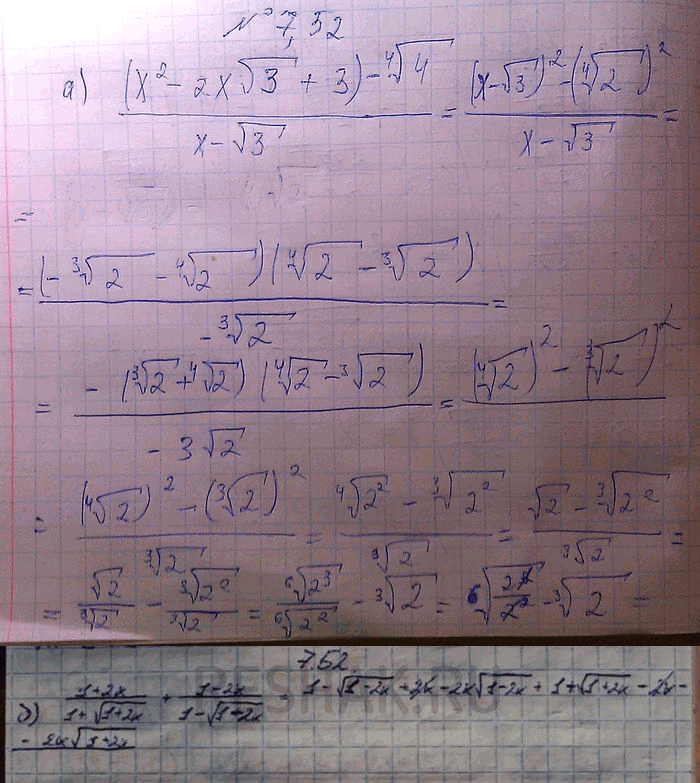 № 7,52
а) ((x² - 2x√3 + 3) - ⁴√4) / (x - √3) = ((x-√3)² - (⁴√2)²) / (x - √3) =
=
= (-³√2 - ⁴√2)(⁴√2 - ³√2) / (-³√2) =
= - (³√2 + ⁴√2)(⁴√2 - ³√2) / (- 3√2) = (⁴√2)² - (³√2)²
= ((⁴√2)² - (³√2)²) / ³√2 = (⁴√2² - ³√2²) / ³√2 = (√2 - ³√2²) / ³√2 =
= √2/³√2 - ³√2²/³√2 = ⁶√2³/⁶√2² - ³√2 = - ³√2 =
7.52.
RESHAK.RU
б) (1+2x)/(1+√(1+2x)) + (1-2x)/(1-√(1-2x)) = 1-√(1-2x) + 2x - 2x√(1-2x) + 1+√(1+2x) - 2x -
- 2x√(1+2x)